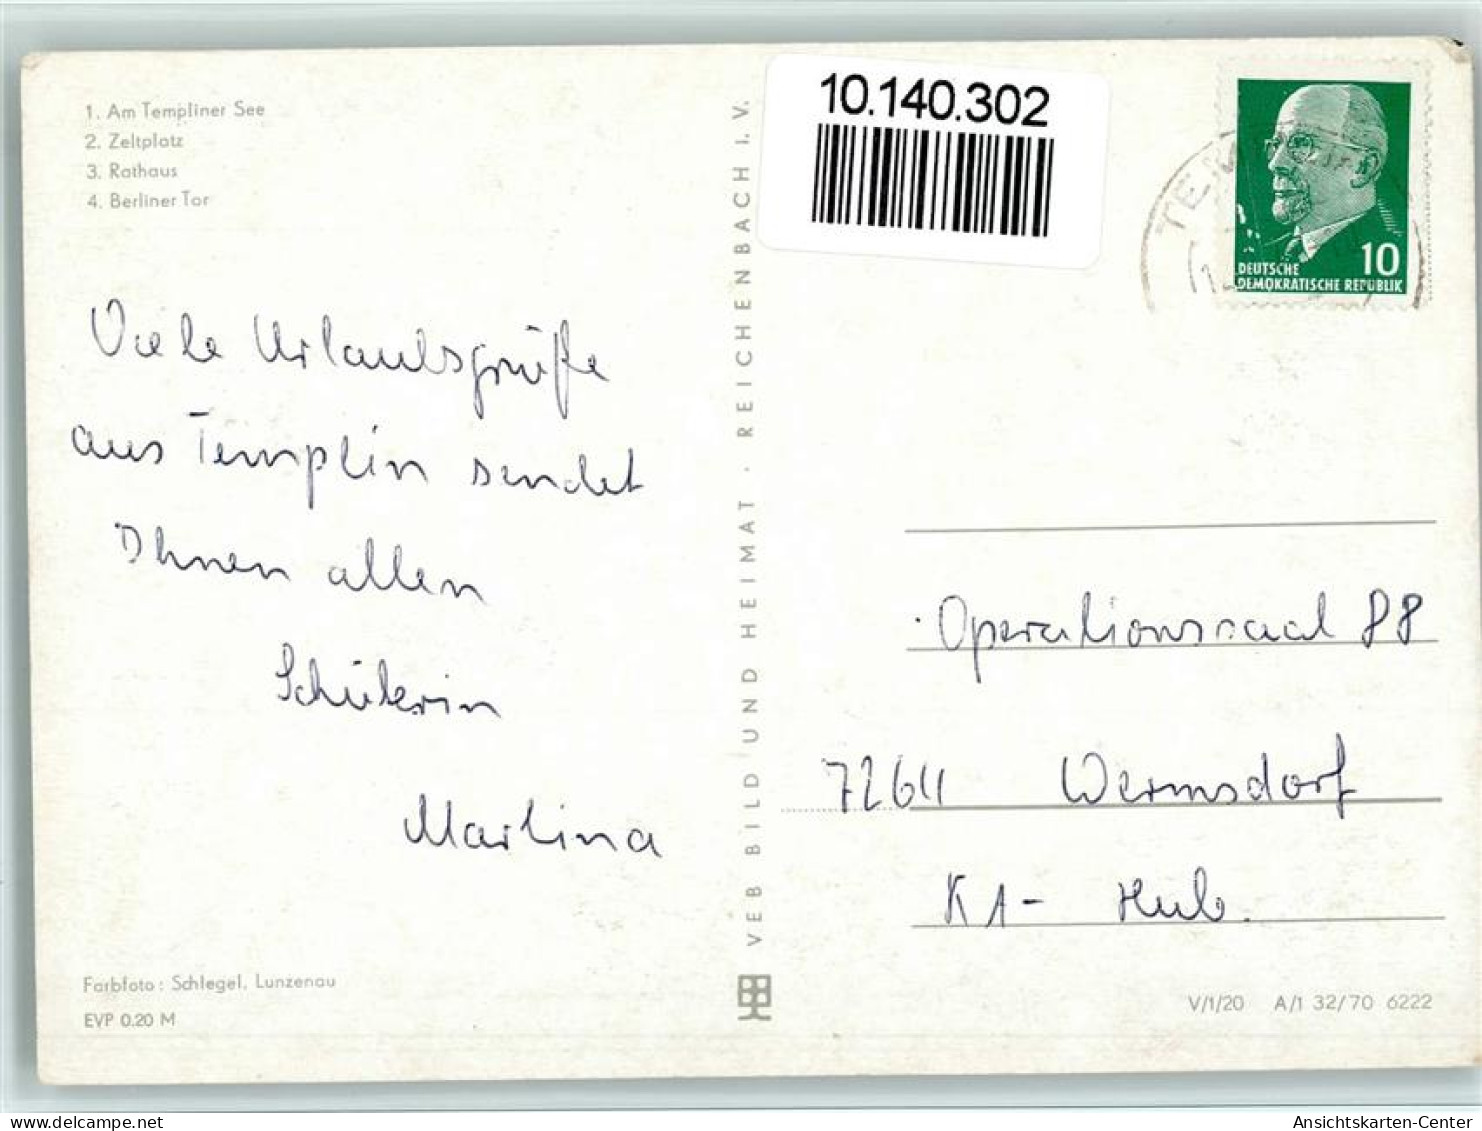 1. Am Templiner See
2. Zeltplatz
3. Rathaus
4. Berliner Tor
Viele Urlaubsgrüße
aus Templin sendet
Ihnen allen
Schülerin
Marlina
Farbfoto: Schlegel, Lunzenau
EVP 0.20 M
VEB BILD UND HEIMAT · REICHENBACH I. V.
10.140.302
10
DEUTSCHE
DEMOKRATISCHE REPUBLIK
Operationssaal 88
7264 Wermsdorf
K1- Hub.
V/1/20 A/1 32/70 6222
Ansichtskarten-Center